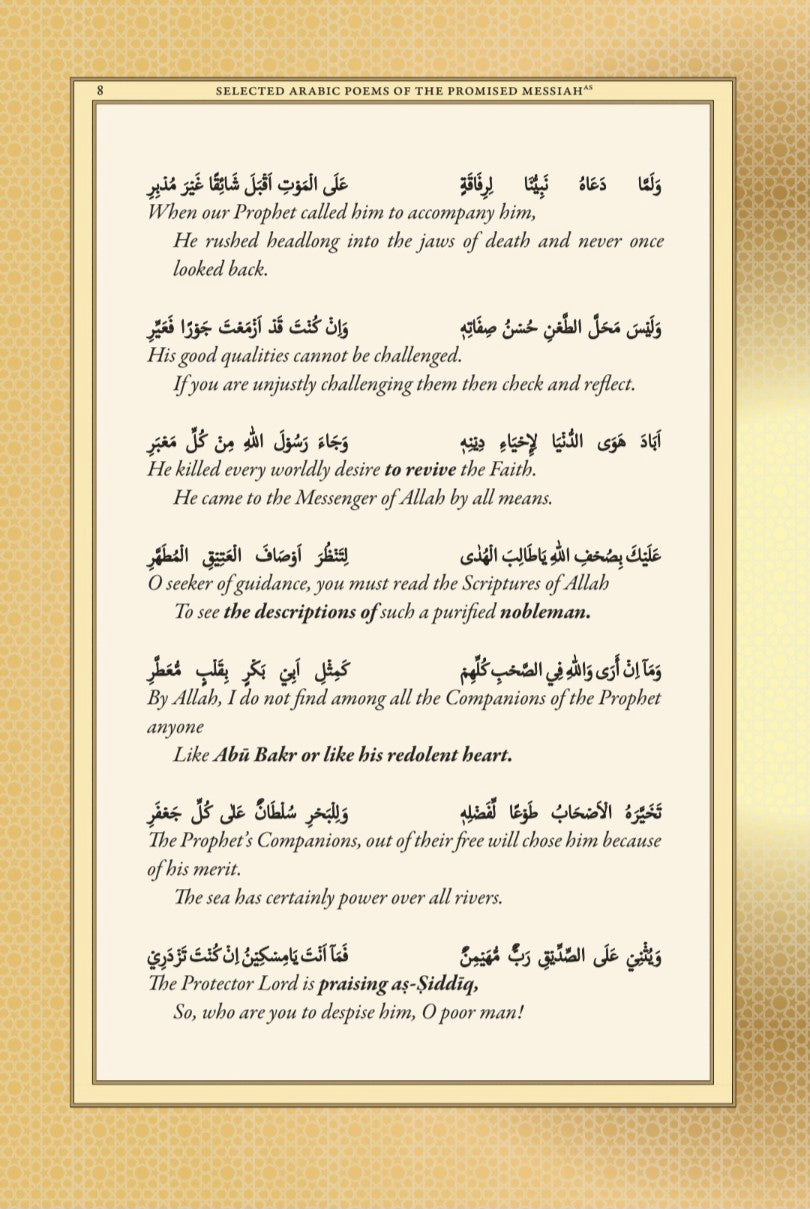 8 SELECTED ARABIC POEMS OF THE PROMISED MESSIAHᴬˢ
وَلَمَّا دَعَاهُ نَبِيُّنَا لِرِفَاقَةٍ عَلَى الْمَوْتِ اَقْبَلَ شَائِقًا غَيْرَ مُدْبِرِ
When our Prophet called him to accompany him,
He rushed headlong into the jaws of death and never once
looked back.
وَلَيْسَ مَحَلَّ الطَّعْنِ حُسْنُ صِفَاتِهٖ وَاِنْ كُنْتَ قَدْ اَزْمَعْتَ جَوْرًا فَعَيِّرِ
His good qualities cannot be challenged.
If you are unjustly challenging them then check and reflect.
اَبَادَ هَوَى الدُّنْيَا لِإِحْيَاءِ دِيْنِهٖ وَجَاءَ رَسُوْلَ اللّٰهِ مِنْ كُلِّ مَعْبَرِ
He killed every worldly desire to revive the Faith.
He came to the Messenger of Allah by all means.
عَلَيْكَ بِصُحْفِ اللّٰهِ يَاطَالِبَ الْهُدٰى لِتَنْظُرَ اَوْصَافَ الْعَتِيْقِ الْمُطَهَّرِ
O seeker of guidance, you must read the Scriptures of Allah
To see the descriptions of such a purified nobleman.
وَمَآ اِنْ أَرَى وَاللّٰهِ فِي الصَّحْبِ كُلِّهِمْ كَمِثْلِ اَبِيْ بَكْرٍ بِقَلْبٍ مُّعَطَّرِ
By Allah, I do not find among all the Companions of the Prophet
anyone
Like Abū Bakr or like his redolent heart.
تَخَيَّرَهُ الْاَصْحَابُ طَوْعًا لِّفَضْلِهٖ وَلِلْبَحْرِ سُلْطَانٌ عَلٰى كُلِّ جَعْفَرِ
The Prophet’s Companions, out of their free will chose him because
of his merit.
The sea has certainly power over all rivers.
وَيُثْنِيْ عَلَى الصِّدِّيْقِ رَبٌّ مُّهَيْمِنٌ فَمَآ اَنْتَ يَامِسْكِيْنُ اِنْ كُنْتَ تَزْدَرِيْ
The Protector Lord is praising aṣ-Ṣiddīq,
So, who are you to despise him, O poor man!